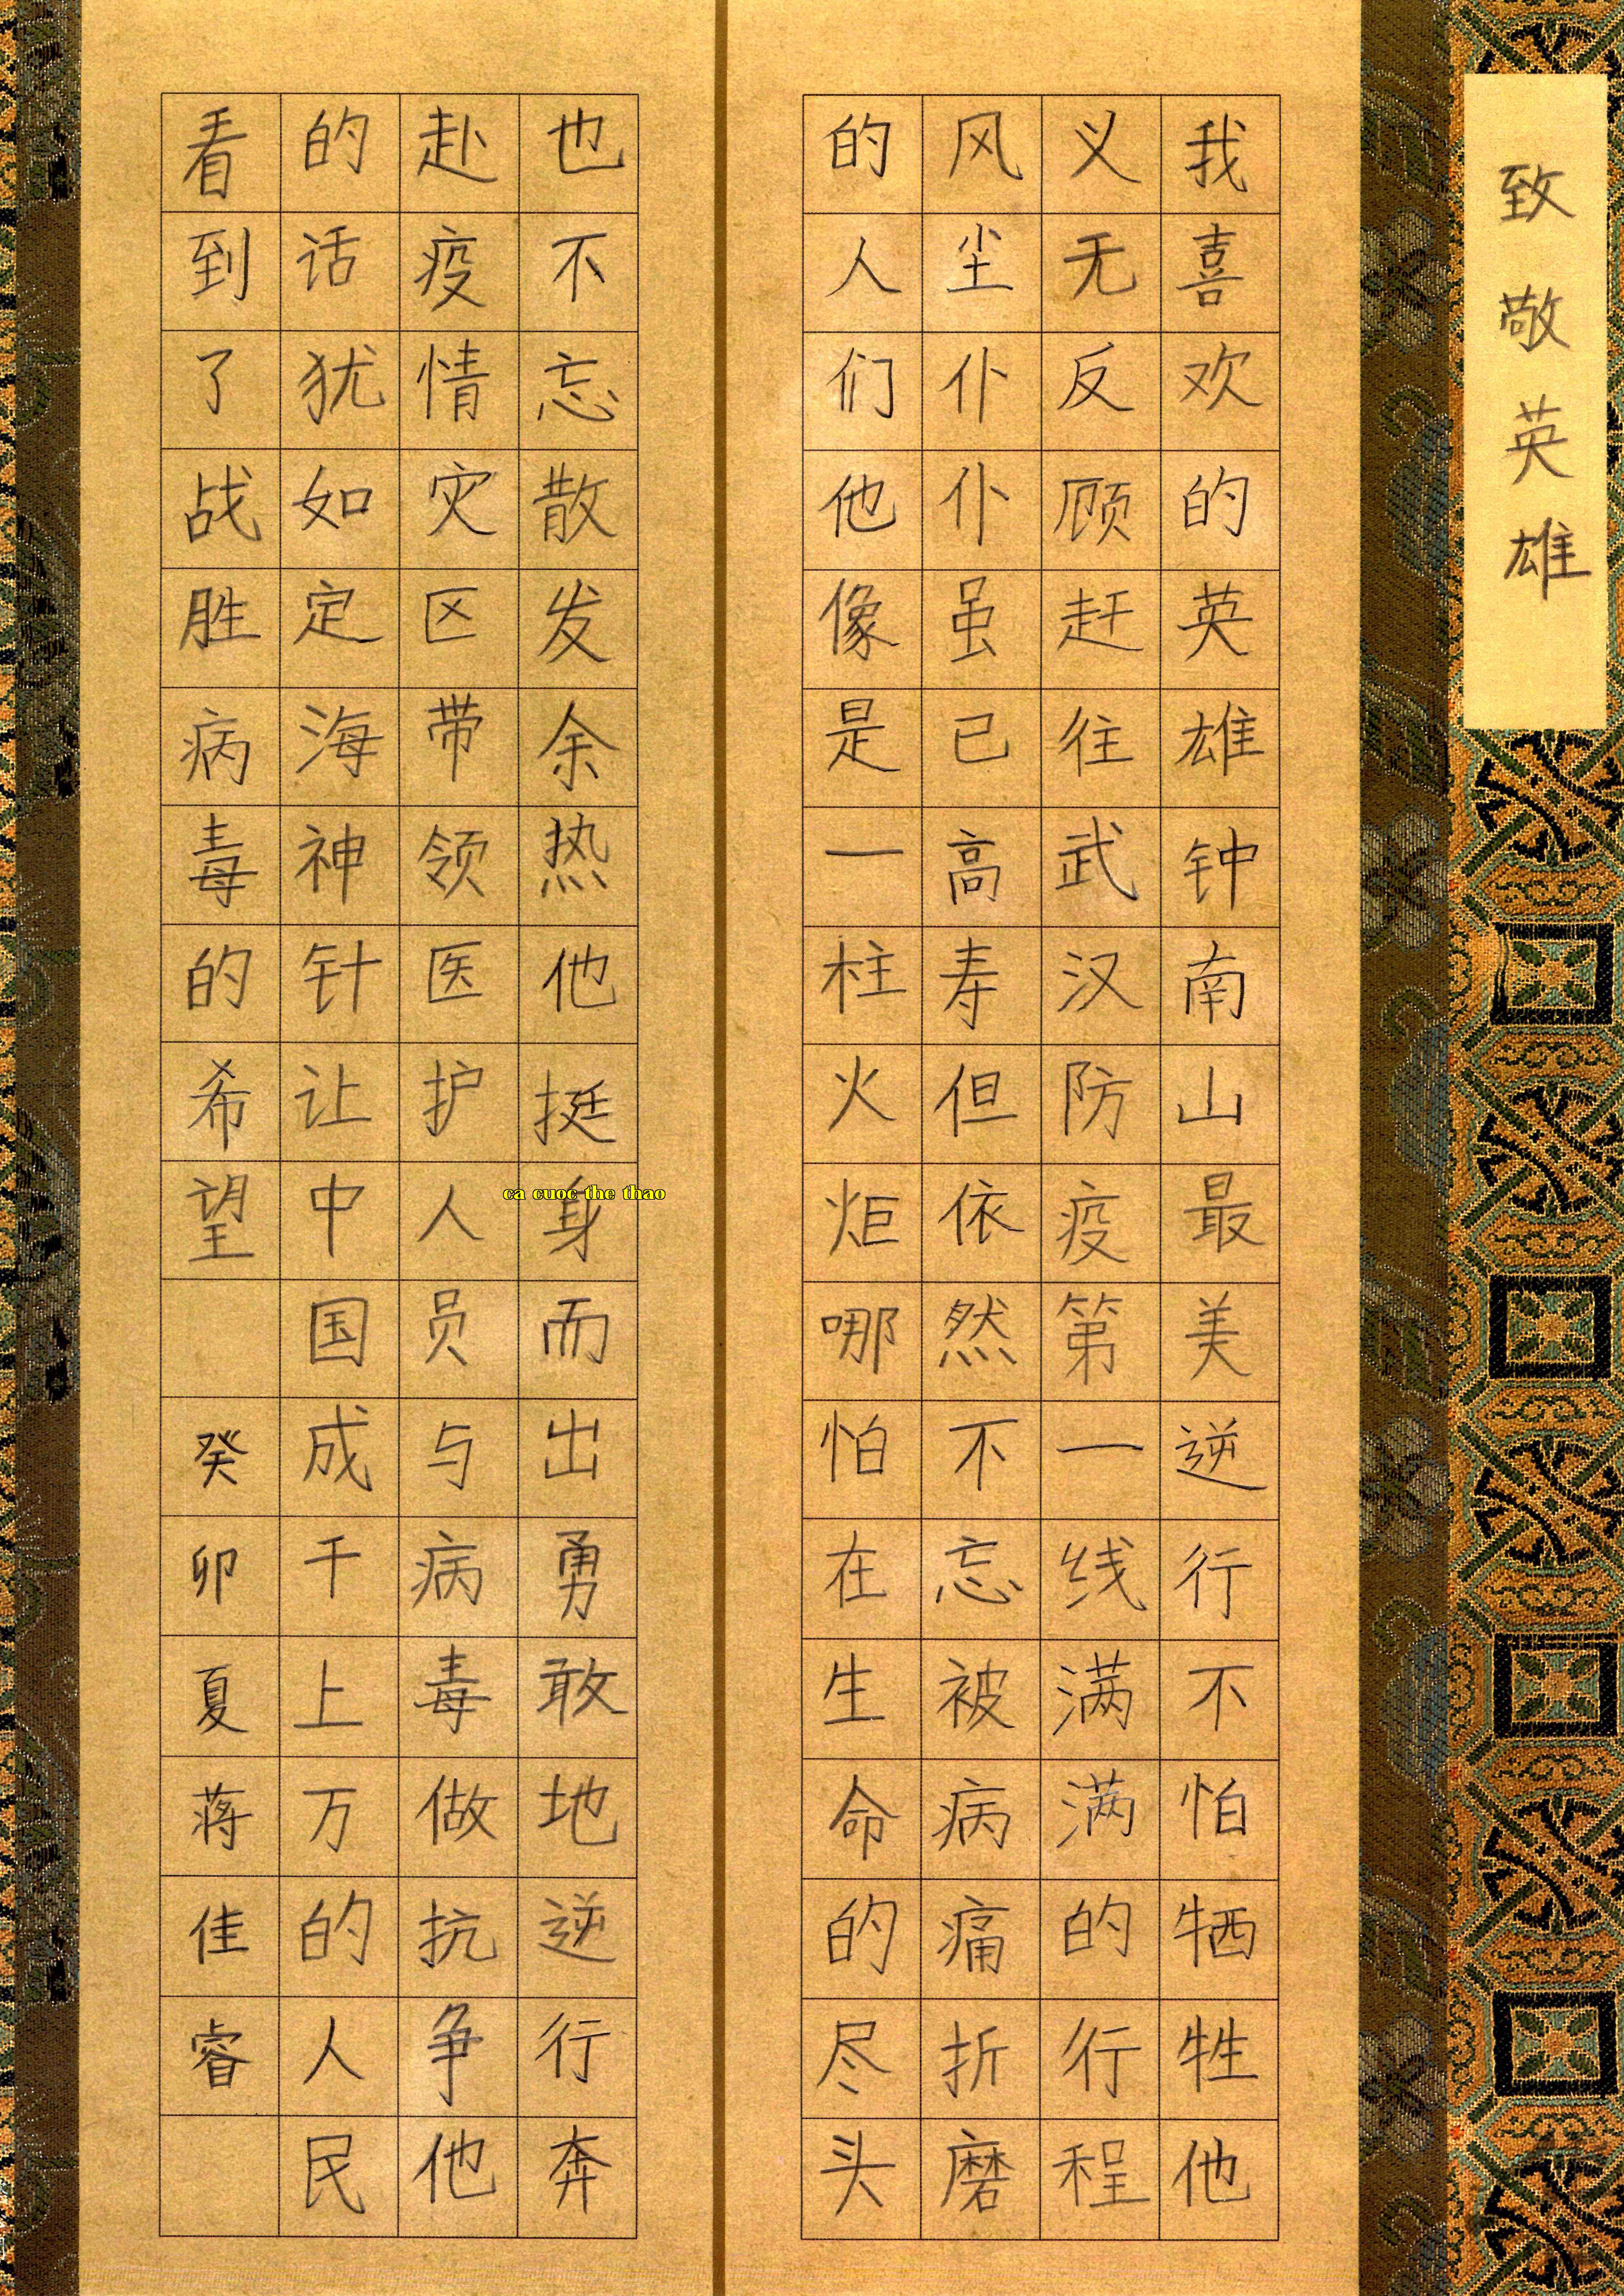 致敬英雄
我喜欢的英雄钟南山最美逆行不怕牺牲他
义无反顾赶往武汉防疫第一线满满的行程
风尘仆仆虽已高寿但依然不忘被病痛折磨
的人们他像是一柱火炬哪怕在生命的尽头
也不忘散发余热他挺身而出勇敢地逆行奔
赴疫情灾区带领医护人员与病毒做抗争他
的话犹如定海神针让中国成千上万的人民
看到了战胜病毒的希望
癸卯夏蒋佳睿
ca cuoc the thao